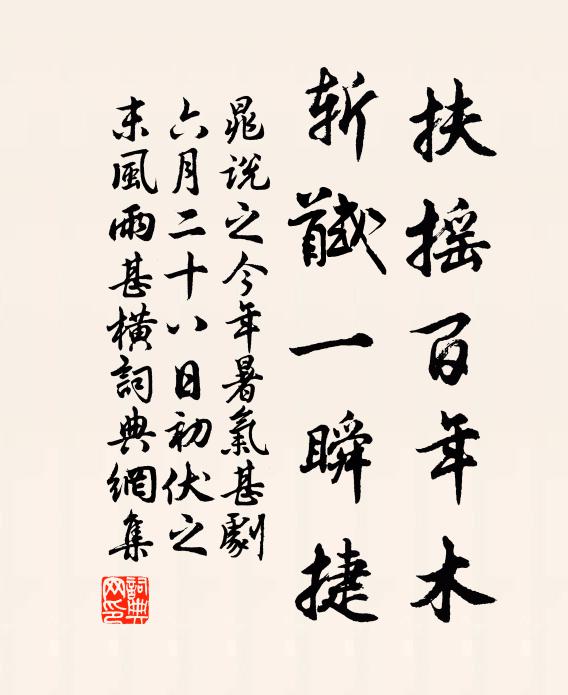 扶摇百年木
斩馘一瞬捷
晁说之今年暑气甚剧
六月二十八日初伏之
末風雨甚橫詞典網集
詞典网印